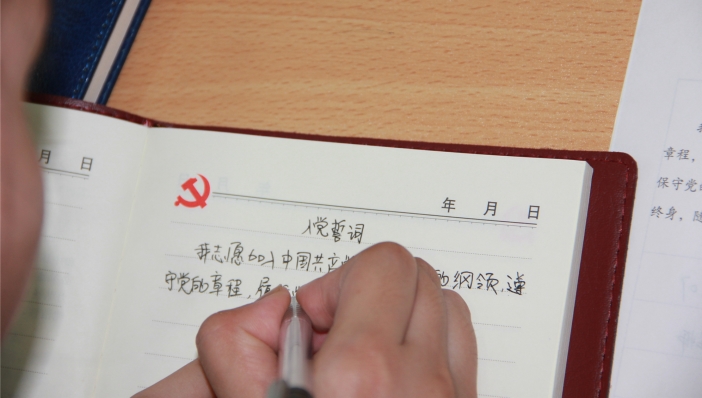 月 日
年 月 日
入党誓词
我志愿加入中国共产 纲领,遵
守党的章程,履
章程,
保守党
终身,随